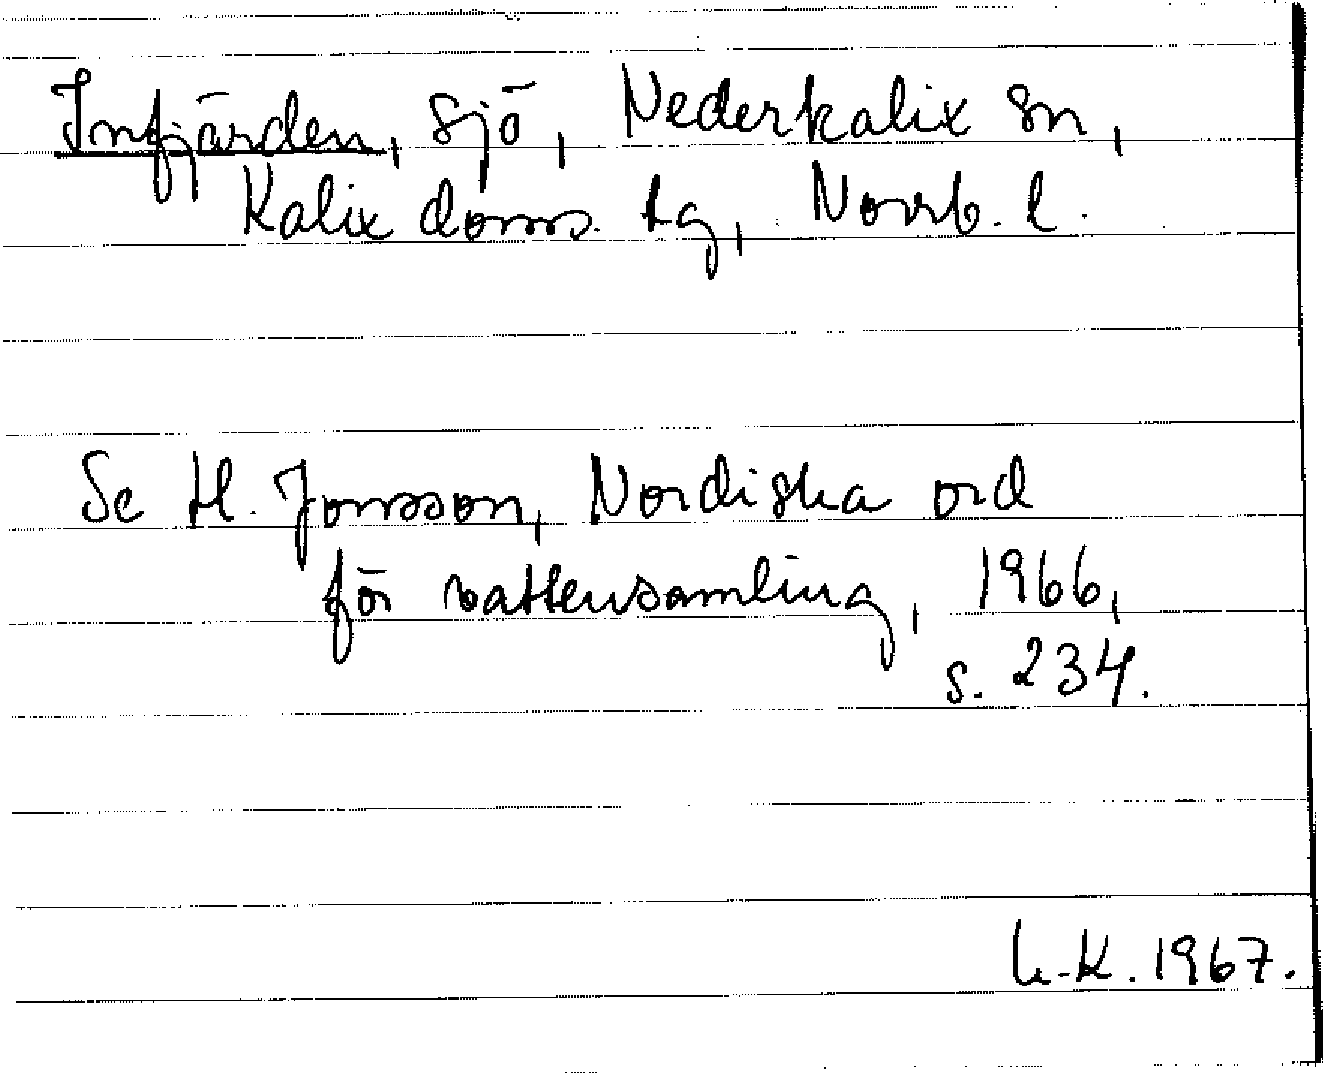 Infjärden, sjö, Nederkalix sn,
Kalix doms. tg, Norrb. l.
Se H. Jonsson, Nordiska ord
för vattensamling, 1966,
s. 234.
K. 1967.